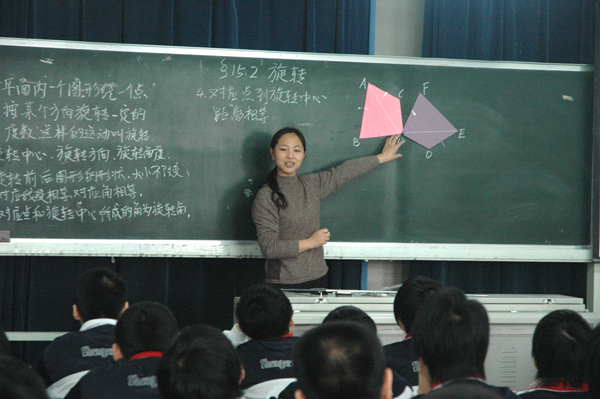 §15.2 旋转
平面内一个图形绕一个点
按某个方向旋转一定的
度数,这样的运动叫旋转
转中心、旋转方向、旋转角度
旋转前后图形的形状、大小不变、
对应线段相等、对应角相等.
对应点和旋转中心所成的角为旋转角.
4.对应点到旋转中心
距离相等
A
C
F
B
E
D